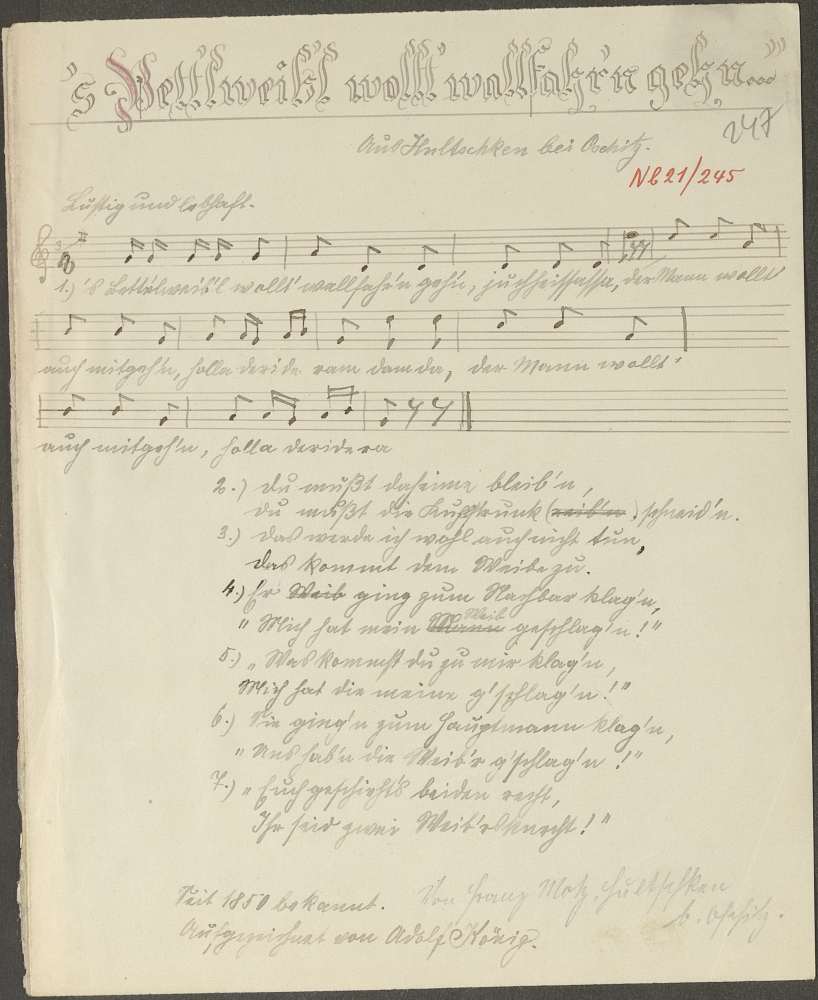 's Bettlweib'l wollt' wallfahr'n gehn..."
247
Aus Hultschken bei Oschitz.
Nb21/245
Lustig und lebhaft.
1.) 's Bettelweib'l wollt' wallfahr'n geh'n, juchheissassa, der Mann wollt'
auch mitgeh'n, holla deride ram dam da, der Mann wollt'
auch mitgeh'n, holla deridera
2.) du mußt daheime bleib'n,
du mußt die Kuh'trunk (reib'n) schneid'n.
3.) das werde ich wohl auch nicht tun,
das kommt dem Weibe zu.
4.) Er Weib ging zum Nachbar klag'n,
"Mich hat mein Mann Weib geschlag'n!"
5.) "Was kommst du zu mir klag'n,
Mich hat die meine g'schlag'n!"
6.) Sie ging'n zum Hauptmann klag'n,
"Uns hab'n die Weib'r g'schlag'n!"
7.) "Euch geschieht's beiden recht,
Ihr seid zwei Weib'rsknecht!"
Seit 1850 bekannt. Von Franz Motz, Hultschken
b. Oschitz.
Aufgezeichnet von Adolf König.